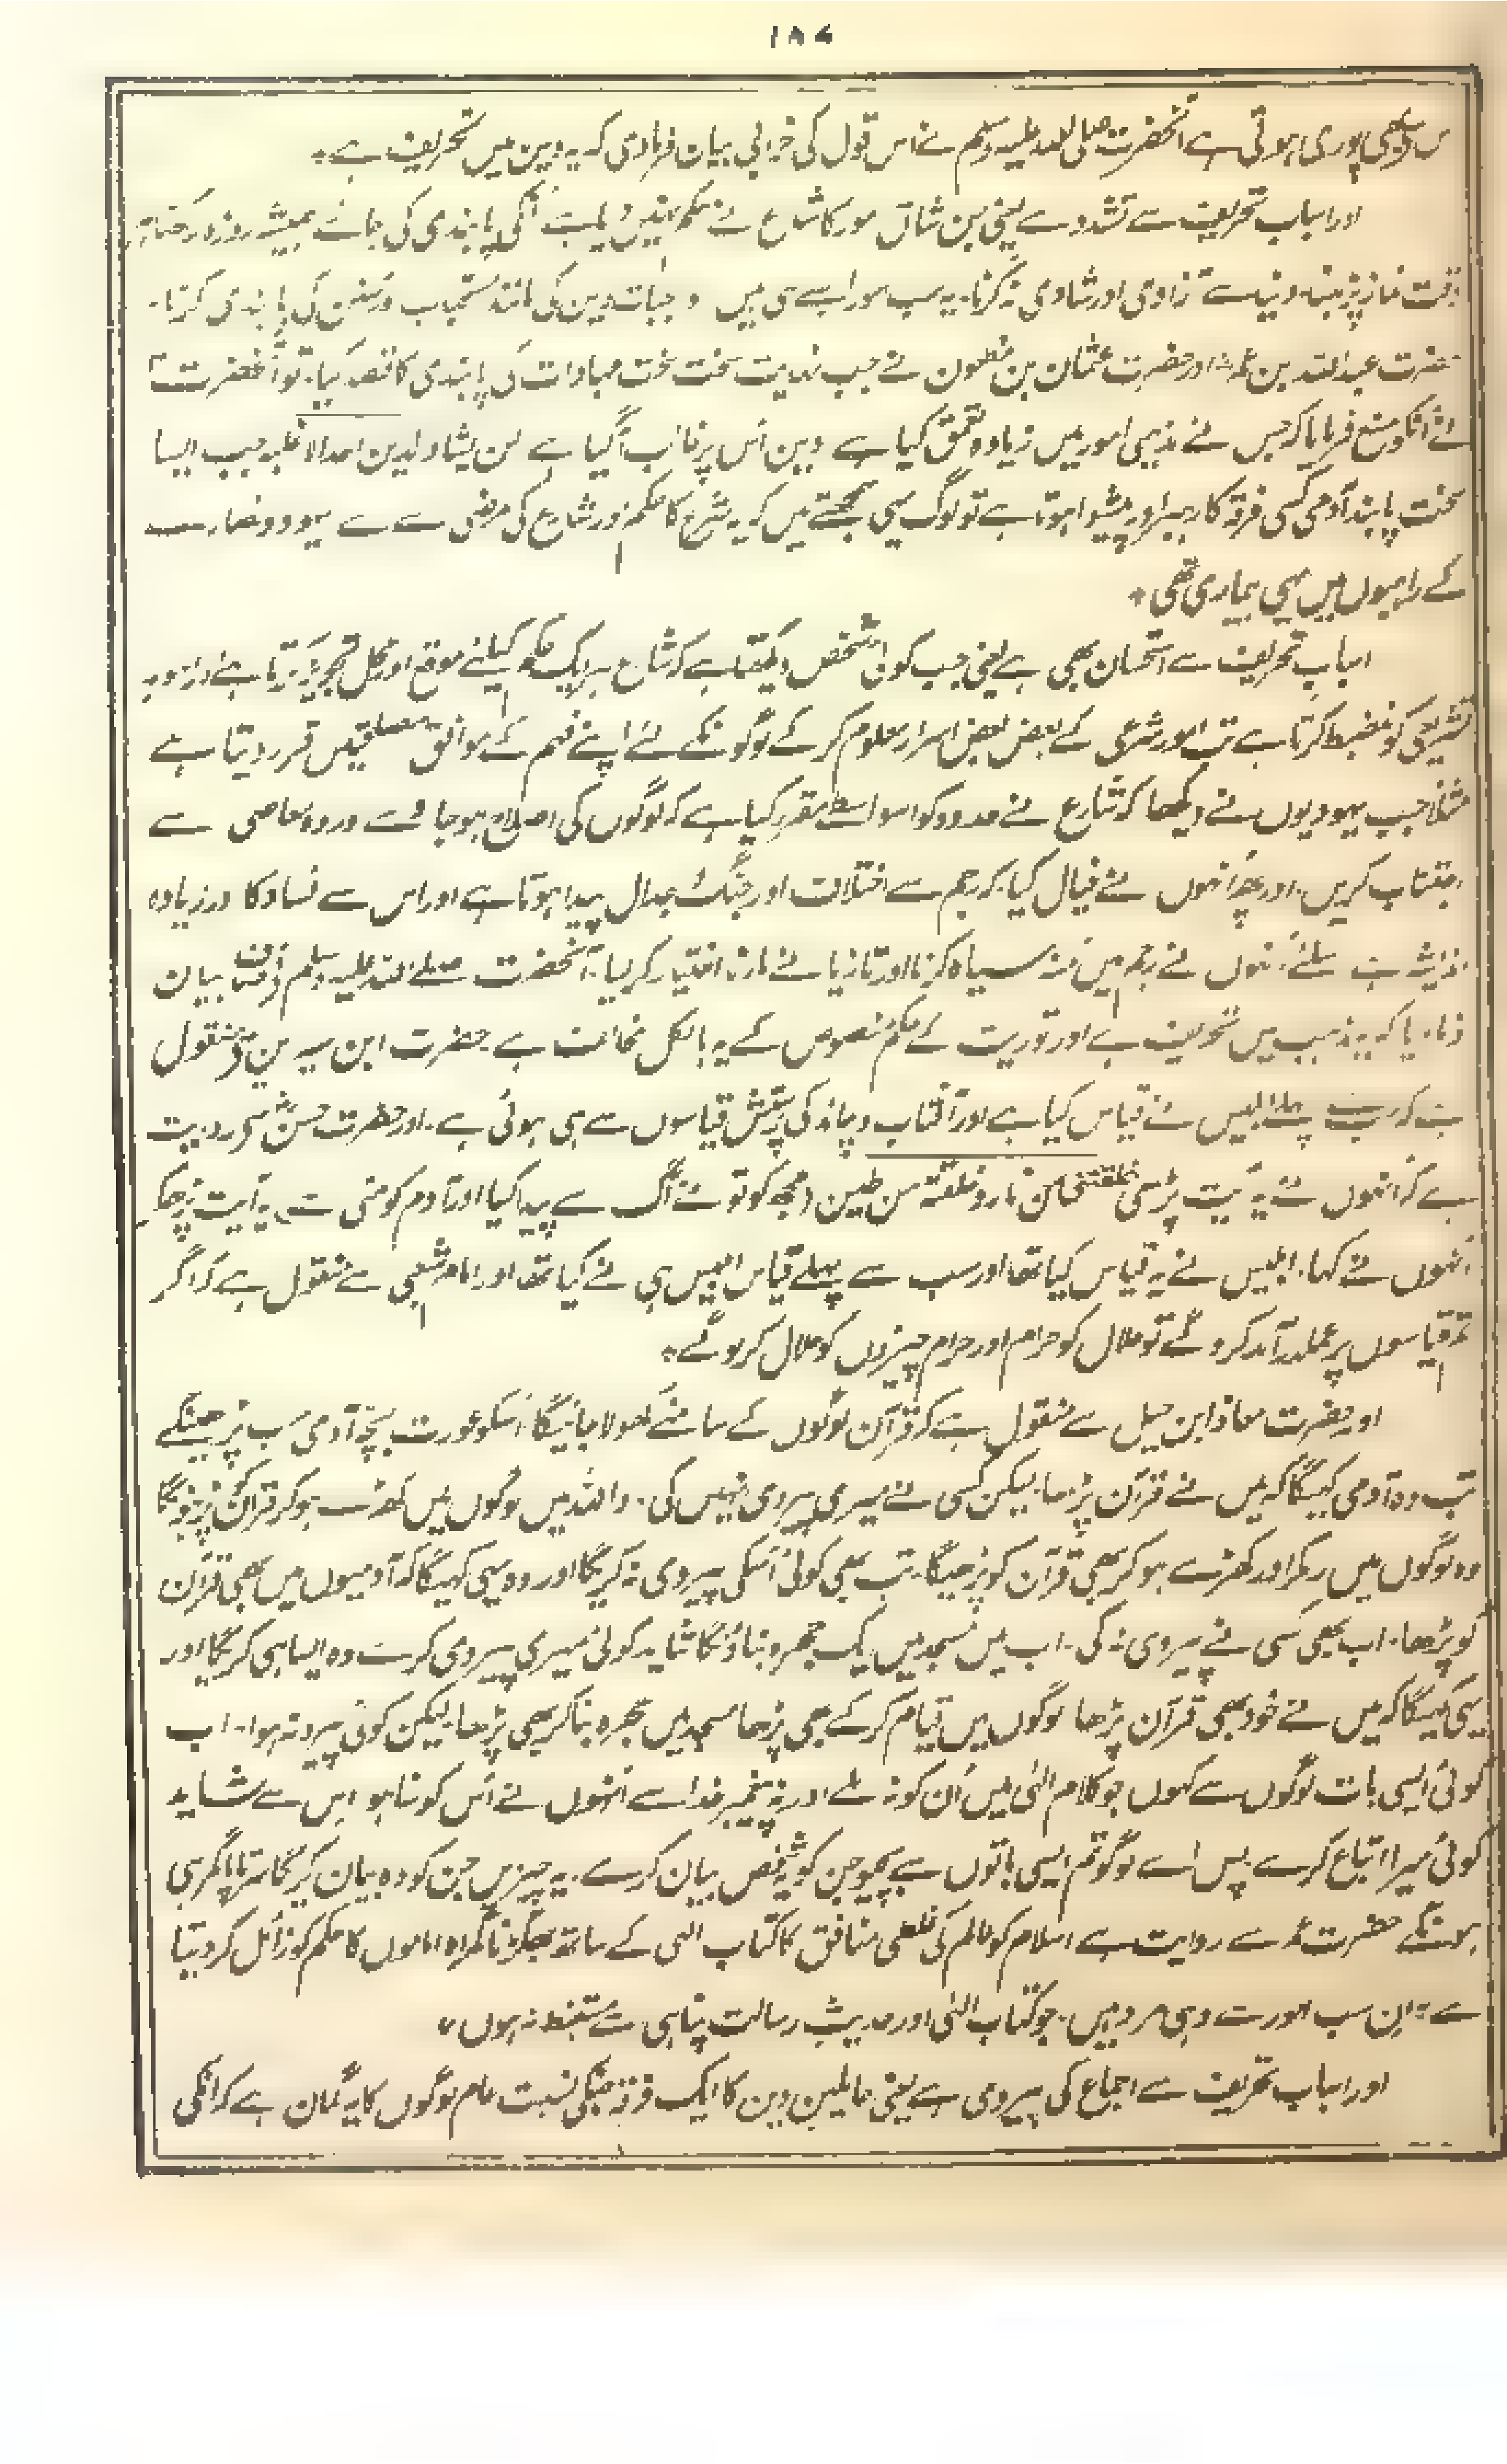 ۱۸۷
بھی پوری ہوتی ہے آنحضرت صلی اللہ علیہ وسلم نے اس قول کی خرابی بیان فرمادی کہ یہ دین میں تحریف ہے۔
اور اسباب تحریف سے تشدد ہے یعنی جن شاق امور کا شارع نے حکم نہیں دیا ہے اُنکی پابندی کی جائے ہمیشہ روزہ رکھنا ہر
وقت نماز پڑہنا دنیا سے آزادی اور شادی نہ کرنا۔ یہ سب امور ایسے ہی ہیں واجبات دین کی مانند مستحباب و سنن کی پابندی کرنا۔
حضرت عبداللہ بن عمرؓ اور حضرت عثمان بن مظعون نے جب نہایت سخت سخت عبادات کی پابندی کا قصد کیا۔ تو آنحضرت ؐ
نے انکو منع فرمایا کہ جس نے مذہبی امور میں زیادہ تعمق کیا ہے دین اُس پر غالب آگیا ہے لن یشاد الدین احد الا غلبہ جب ایسا
سخت پابند آدمی کسی فرقہ کا رہبر اور پیشوا ہوتا ہے تو لوگ یہی سمجھتے ہیں کہ یہ شرع کا حکم اور شارع کی مرضی سے ہے یہود و نصارے
کے راہبوں میں یہی بیماری تھی ۔
اسباب تحریف سے استحسان بھی ہے یعنی جب کوئی شخص دیکھتا ہے کہ شارع ہر ایک حکم کیلئے موقع اور محل تجویز کرتا ہے اور امور
تشریعی کو منضبط کرتا ہے تب امور شرعی کے بعض بعض اسرار معلوم کر کے لوگونکے لئے اپنے فہم کے موافق مصلحتیں قرار دیتا ہے
مثلا جب یہودیوں نے دیکھا کہ شارع نے حدود کو اسواسطے مقرر کیا ہے کہ لوگوں کی اصلاح ہو جاوے اور وہ معاصی سے
اجتناب کریں۔ اور پھر اُنہوں نے خیال کیا کہ رجم سے اختلاف اور جنگ و جدال پیدا ہوتا ہے اور اس سے فساد کا اور زیادہ
اندیشہ ہے اسلئے اُنہوں نے رجم میں منہ سیاہ کرنا اور تازیانے مارنا اختیار کر لیا۔ آنحضرت صلے اللہ علیہ وسلم نے بیان
فرمایا کہ یہ مذہب میں تحریف ہے اور توریت کے حکم منصوص کے یہ بالکل مخالف ہے۔ حضرت ابن سیرین سے منقول
ہے کہ سب سے پہلے ابلیس نے قیاس کیا ہے اور آفتاب و چاند کی پرستش قیاسوں سے ہی ہوئی ہے۔ اور حضرت حسنؓ سے روایت
ہے کہ اُنہوں نے یہ آیت پڑھی خلقتنی من نار وخلقتہ من طین (مجھ کو تو نے آگ سے پیدا کیا اور آدم کو مٹی سے) یہ آیت پڑھکر
اُنہوں نے کہا۔ ابلیس نے یہ قیاس کیا تھا اور سب سے پہلے قیاس ابلیس ہی نے کیا تھا اور امام شعبی سے منقول ہے کہ اگر
تم قیاسوں پر عملدرآمد کرو گے تو حلال کو حرام اور حرام چیزوں کو حلال کر لو گے۔
اور حضرت معاذ ابن جبل سے منقول ہے کہ قرآن لوگوں کے سامنے کھولا جائیگا۔ اُسکو عورت بچے آدمی سب پڑھینگے
تب وہ آدمی کہیگا کہ میں نے قرآن پڑھا۔ لیکن کسی نے میری پیروی نہیں کی۔ واللہ میں لوگوں میں کھڑے ہو کر قرآن کو پڑہونگا
وہ لوگوں میں رہکر اور کھڑے ہو کر بھی قرآن کو پڑھیگا۔ تب بھی کوئی اُسکی پیروی نہ کریگا اور وہ یہی کہیگا کہ آدمیوں میں بھی قرآن
کو پڑھا۔ اب بھی کسی نے پیروی نہ کی۔ اب میں مسجد میں ایک حجرہ بناؤنگا شاید کوئی میری پیروی کرے وہ ایسا ہی کریگا اور
یہی کہیگا کہ میں نے خود بھی قرآن پڑھا لوگوں میں قیام کر کے بھی پڑھا مسجد میں حجرہ بنا کر بھی پڑھا۔ لیکن کوئی پیرو نہ ہوا۔ اب
کوئی ایسی بات لوگوں سے کہوں جو کلام الٰہی میں اُن کو نہ ملے اور نہ پیغمبر خدا سے اُنہوں نے اُس کو سنا ہو اس سے شاید
کوئی میرا اتباع کرے پس اے لوگو تم ایسی باتوں سے بچیو جن کو یہ شخص بیان کرے۔ یہ چیزیں جن کو وہ بیان کریگا سرتاپا گمراہی
ہونگے حضرت عمرؓ سے روایت ہے اسلام کو عالم کی غلطی منافق کا کتاب الٰہی کے ساتھ جھگڑنا گمراہ اماموں کا حکم کو زائل کر دیتا
ہے۔ ان سب امور سے وہی مراد ہیں۔ جو کتاب الٰہی اور حدیث رسالت پناہی سے مستنبط نہ ہوں۔
اور اسباب تحریف سے اجماع کی پیروی ہے یعنی حاملین دین کا ایک فرقہ جنکی نسبت عام لوگوں کا یہ گمان ہے کہ انکی